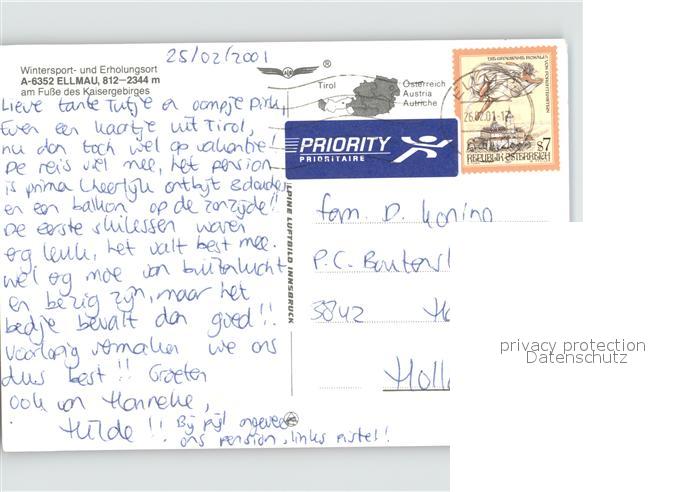 25/02/2001
Wintersport- und Erholungsort
A-6352 ELLMAU, 812–2344 m
am Fuße des Kaisergebirges
Lieve tante Tutje en oompje Pirk,
Even een kaartje uit Tirol,
nu dan toch wel op vakantie!
De reis viel mee, het pension
is prima (heerlijk ontbijt & douche
en een balkon op de zonzijde!!
De eerste skilessen waren
erg leuk, het valt best mee.
Wel erg moe van buitenlucht
en bezig zijn, maar het
bedje bevalt dan goed!!
Voorlopig vermaken we ons
dus best!! Groeten
ook van Hanneke,
Hilde!!
Bij pijl ongeveer
ons pension, links piste!
®
Tirol
Österreich
Austria
Autriche
PRIORITY
PRIORITAIRE
26.02.01-17
S7
REPUBLIK ÖSTERREICH
ALPINE LUFTBILD INNSBRUCK
fam. D. Koning
P.C. Boutens
3842 Ha
Holl
privacy protection
Datenschutz